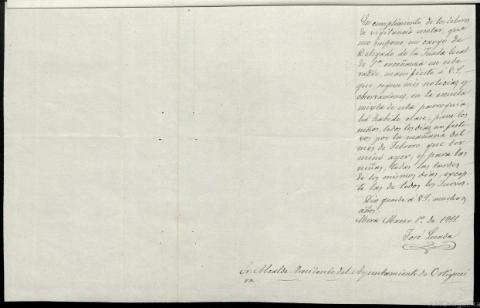 En cumplimiento de los deberes
de vigilancia escolar, que
me impone mi cargo de
Delegado de la Junta local
de 1ª enseñanza en esta
manifiesto á V.S.
que, segun mis noticias y
observaciones, en la escuela
mixta de esta parroquia
ha habido clase, para los
niños, todos los días no festi-
vos por la mañana del
mes de Febrero, que ter-
minó ayer, y para las
niñas, todas las tardes
de los mismos días, excep-
to las de todos los Jueves.
Dios guarde á V.S. muchos
años.
Mera Marzo 1º de 1911
José
Sr. Alcalde Presidente del Ayuntamiento de Ortiguei
ra.